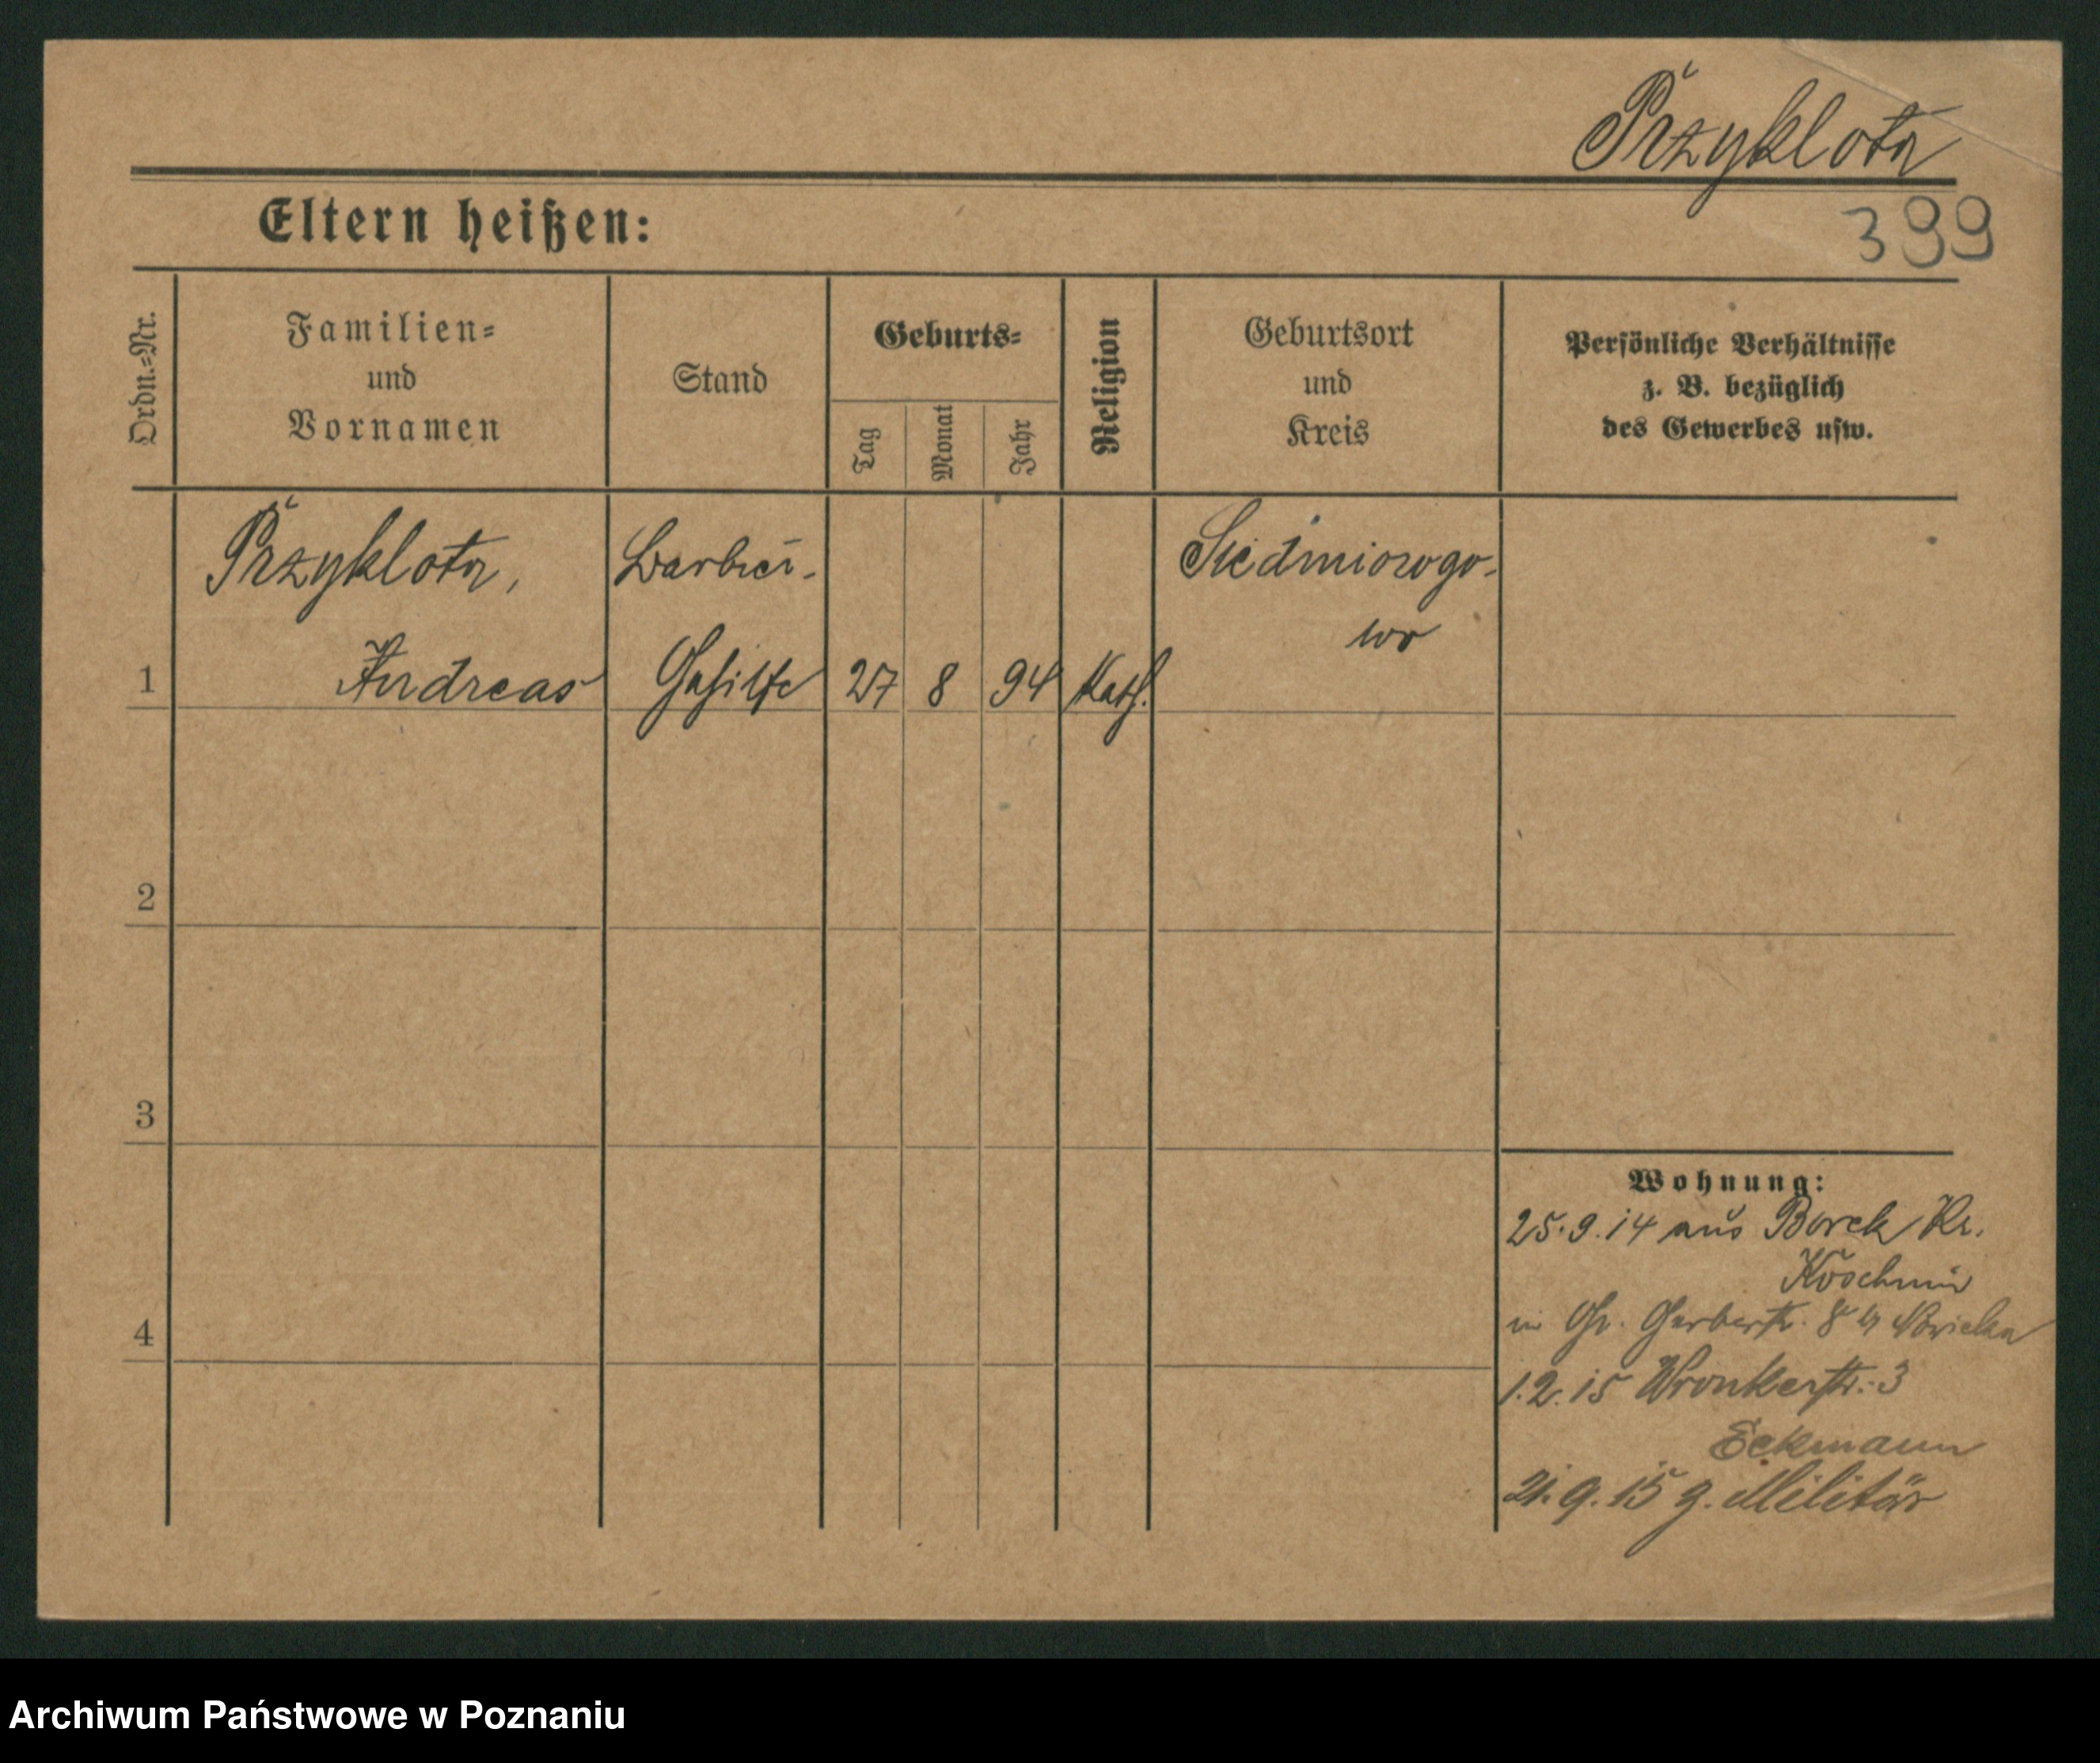 Přzyklota
399
Eltern heißen:
Ordn.=Nr.
Familien=
und
Vornamen
Stand
Geburts=
Tag
Monat
Jahr
Religion
Geburtsort
und
Kreis
Persönliche Verhältnisse
z. B. bezüglich
des Gewerbes usw.
Přzyklota,
Barbier-
Siedmiorogo-
wo
1
Andreas
Gehilfe
27
8
94
Kath.
2
3
Wohnung:
25.9.14 aus Borek Kr.
Koschmin
in Gr. Gerberstr. 8
4
1.2.15 Wronkerstr. 3
Eckmann
21.9.15 z. Militär
Archiwum Państwowe w Poznaniu